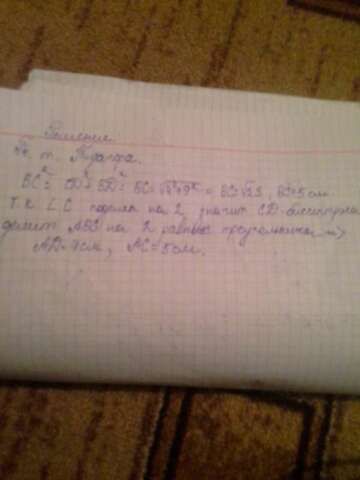 Решение
По т. Пифагора.
BC²= CD²+BD²= BC=√4²+3² = BC=√25, BC=5 см
Т.к. ∠C поделен на 2 значит CD-биссектриса
делит ABC на 2 равных треугольника =>
AD=4см, AC=5см.